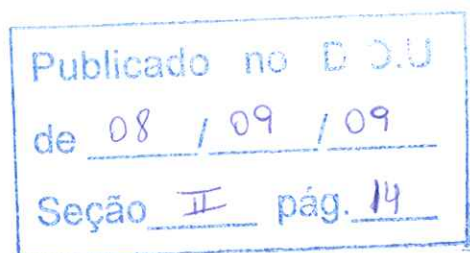 Publicado no D.O.U
de 08 / 09 / 09
Seção II pág. 14